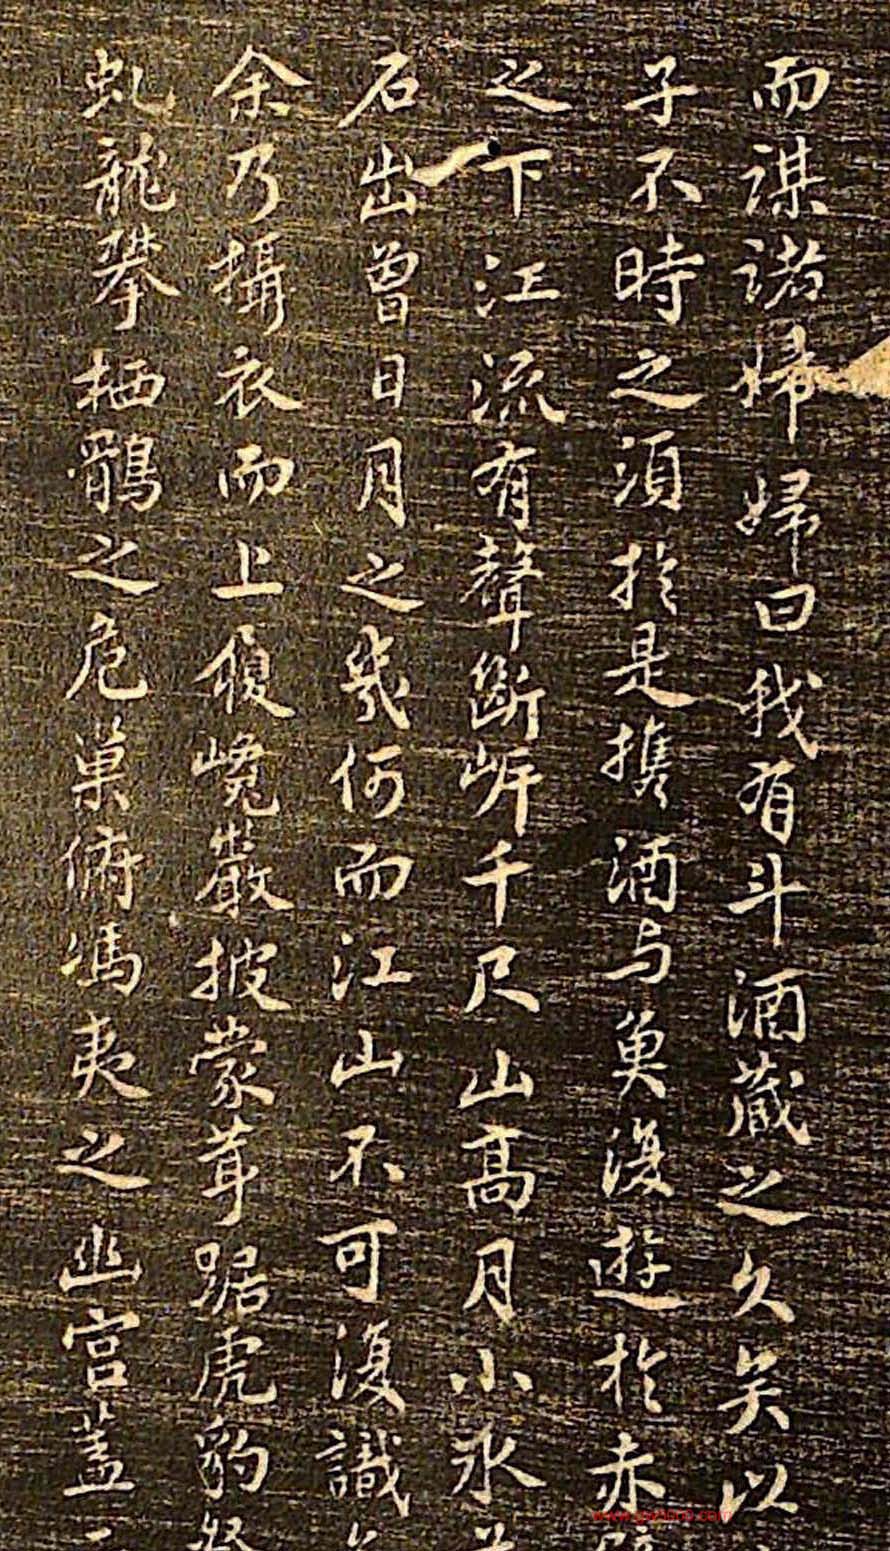 而謀諸婦婦曰我有斗酒藏之久矣以
子不時之須於是攜酒与魚復遊於赤
之下江流有聲斷岸千尺山高月小水
石出曾日月之幾何而江山不可復識
余乃攝衣而上履巉巖披蒙茸踞虎豹
虬龍攀栖鶻之危巢俯馮夷之幽宮蓋